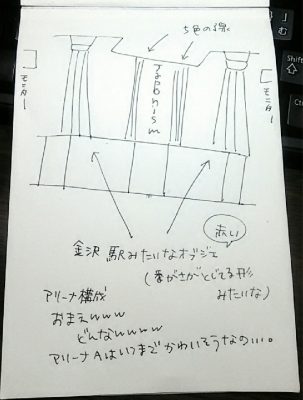 5色の線
モニター
Japonism
モニター
金沢駅みたいなオブジェ
赤い
(番がさがとじてる形
みたいな)
アリーナ構成
おまえwww
どんなwwww
アリーナAはいつまでかわいそうなの…。
む
Shift
Ctrl